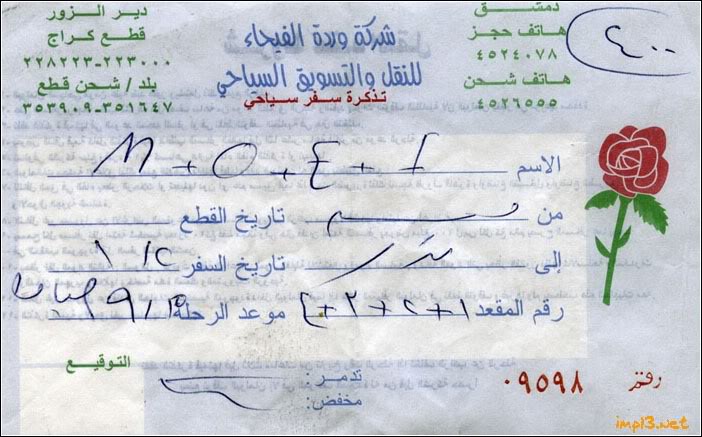 دمشق
هاتف حجز
٤٥٢٤٠٧٨
هاتف شحن
٤٥٢٦٥٥٥
شركة وردة الفيحاء
للنقل والتسويق السياحي
تذكرة سفر سياحي
دير الزور
قطع كراج
٢٢٨٢٢٣-٢٢٣٠٠٠
بلد/ شحن قطع
٣٥٣٩٠٩-٣٥١٦٤٧
٤٠٠
الاسم M + O + E + I
من تاريخ القطع
إلى تاريخ السفر
رقم المقعد ١+٢+٣+٤ موعد الرحلة
تدمر :
مخفض:
التوقيع
رقم ٠٩٥٩٨
imp13.net